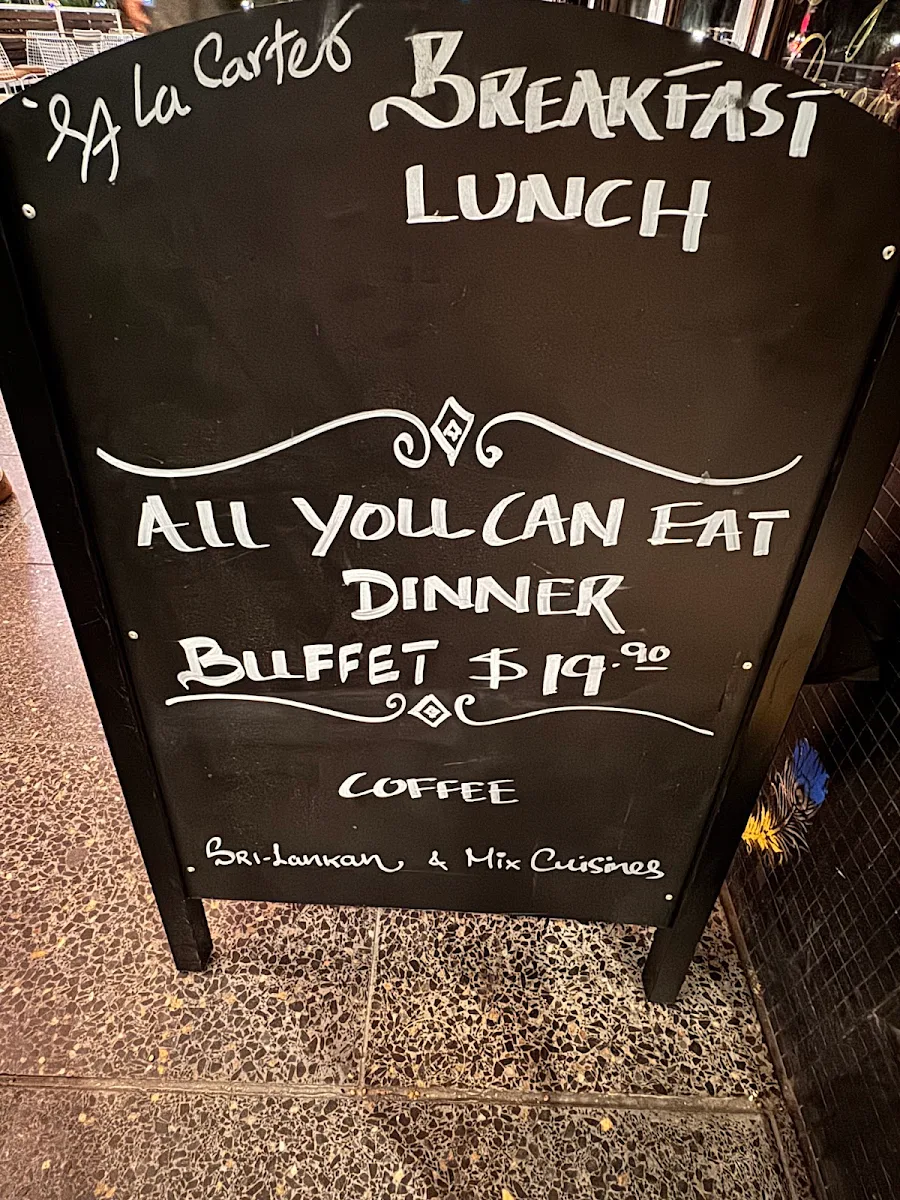 A La Carte
BREAKFAST
LUNCH
All YOU CAN EAT
DINNER
BUFFET $19.90
COFFEE
SRI-Lankan & Mix Cuisines